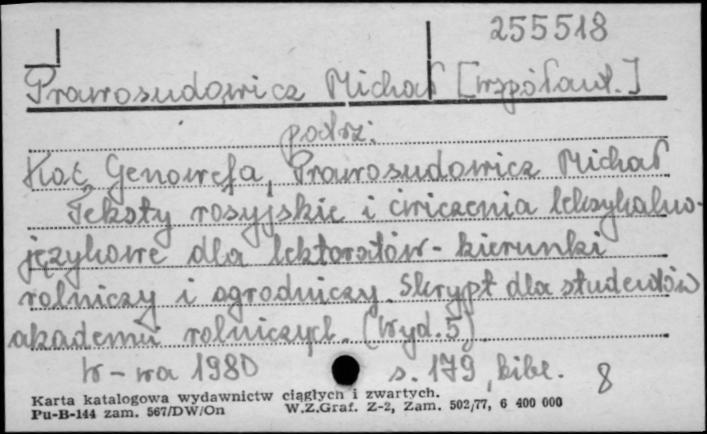 255518
Prawosudowicz Michał [współaut.]
patrz:
Koć Genowefa, Prawosudowicz Michał
Teksty rosyjskie i ćwiczenia leksykalno-
językowe dla lektoratów - kierunki
rolniczy i ogrodniczy. Skrypt dla studentów
akademii rolniczych. (Wyd. 5)
W-wa 1980 s. 179, bibl. 8
Karta katalogowa wydawnictw ciągłych i zwartych.
Pu-B-144 zam. 567/DW/On W.Z.Graf. Z-2, Zam. 502/77, 6 400 000